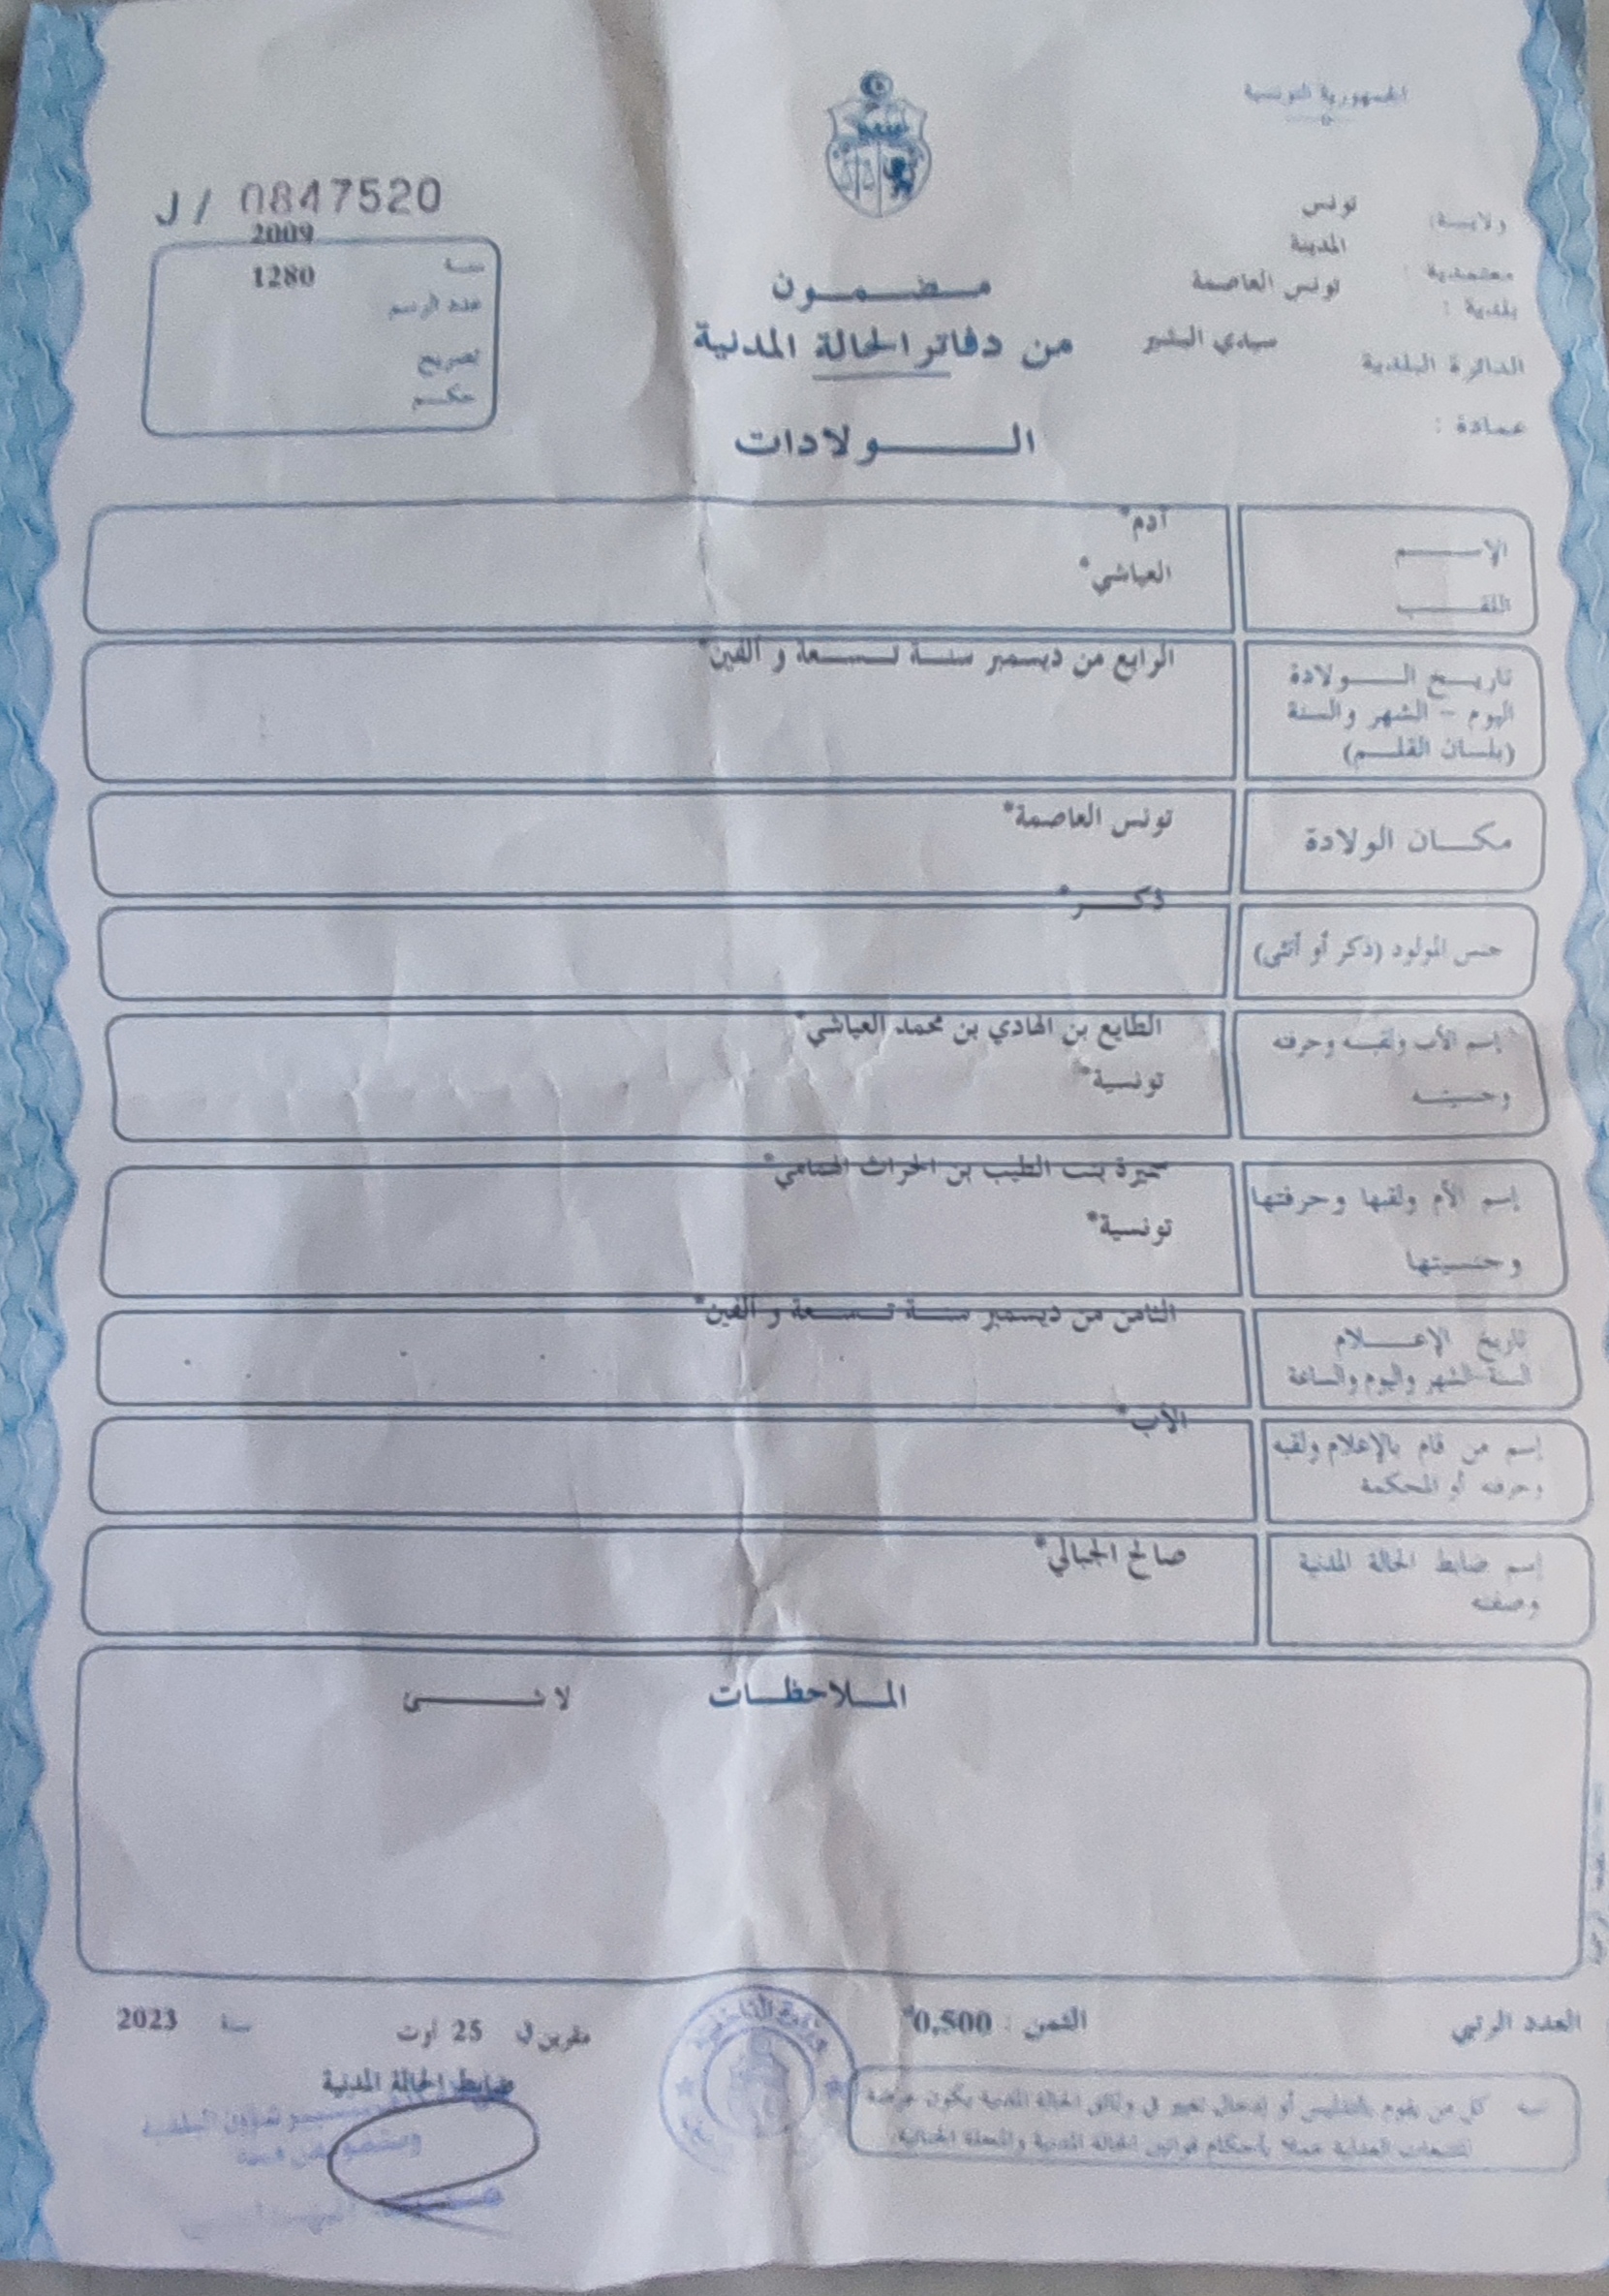 الجمهورية التونسية
J / 0847520
ولاية: تونس
معتمدية : المدينة
بلدية : تونس العاصمة
الدائرة البلدية سيدي البشير
عمادة :
سنة 2009
عدد الرسم 1280
تصريح
حكم
مضمون
من دفاتر الحالة المدنية
الولادات
الإسم آدم*
اللقب العياشي*
تاريخ الولادة الرابع من ديسمبر سنة تسعة و ألفين*
اليوم - الشهر والسنة
(بلسان القلم)
مكان الولادة تونس العاصمة*
جنس المولود (ذكر أو أنثى) ذكر*
إسم الأب ولقبه وحرفته الطايع بن الهادي بن محمد العياشي*
وجنسيته تونسية*
إسم الأم ولقبها وحرفتها سميرة بنت الطيب بن الحراث
وجنسيتها تونسية*
تاريخ الإعلام الثامن من ديسمبر سنة تسعة و ألفين*
السنة الشهر واليوم والساعة
إسم من قام بالإعلام ولقبه الأب*
وحرفته أو المحكمة
إسم ضابط الحالة المدنية صالح الجبالي*
وصفته
الملاحظات لا شئ
العدد الرتبي
الثمن : 0,500
مقرين في 25 أوت سنة 2023
ضابط الحالة المدنية
تنبيه كل من يقوم بالتدليس أو إدخال تغيير في وثائق الحالة المدنية يكون عرضة
للتتبعات العدلية عملا بأحكام قوانين الحالة المدنية والمجلة الجنائية